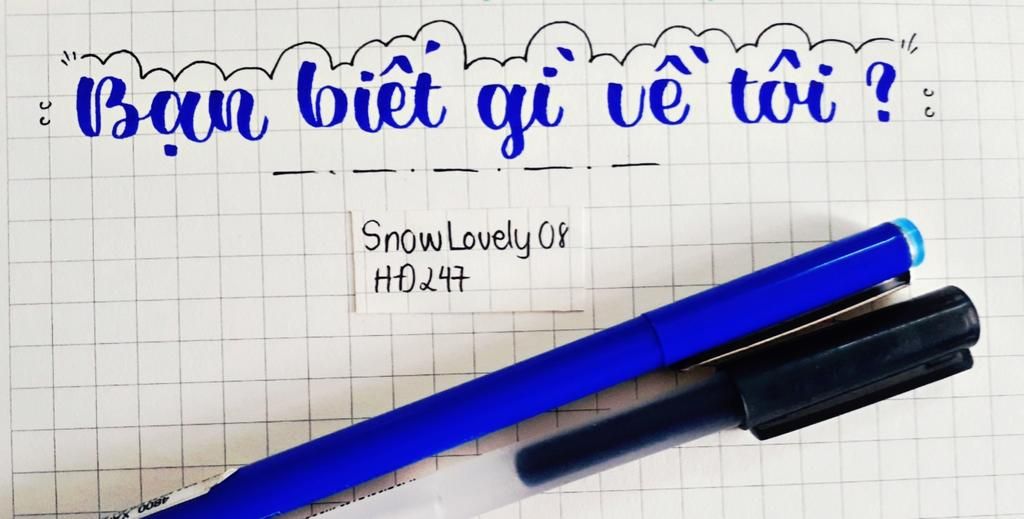 Bạn biết gì về tôi ?
SnowLovely 08
HĐ247
4800 XA